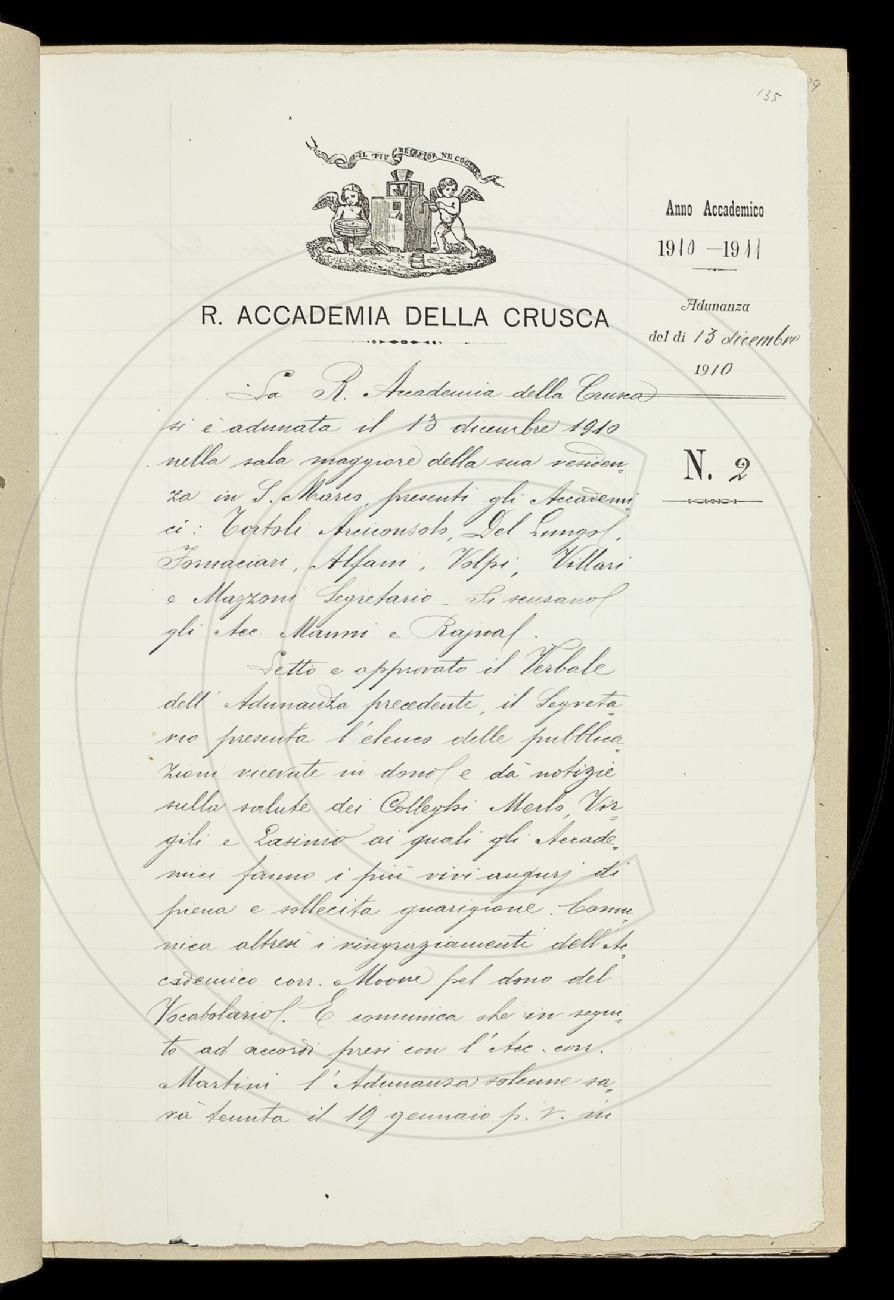 135
IL PIÙ BEL FIOR NE COGLIE
Anno Accademico
1910 — 1911
Adunanza
del dì 13 dicembre
1910
N. 2
R. ACCADEMIA DELLA CRUSCA
La R. Accademia della Crusca
si è adunata il 13 dicembre 1910
nella sala maggiore della sua residen-
za in S. Marco, presenti gli Accademi-
ci: Tortoli Arciconsolo, Del Lungo,
Fornaciari, Alfani, Volpi, Villari
e Mazzoni Segretario – Si scusano
gli Acc. Manni e Rajna.
Letto e approvato il Verbale
dell'Adunanza precedente, il Segreta-
rio presenta l'elenco delle pubblica-
zioni ricevute in dono e dà notizie
sulla salute dei Colleghi Merlo, Vir-
gili e Lasinio ai quali gli Accade-
mici fanno i più vivi augurj di
piena e sollecita guarigione. Comu-
nica altresì i ringraziamenti dell'Ac-
cademico corr. Moore pel dono del
Vocabolario. E comunica che in segui-
to ad accordi presi con l'Acc. corr.
Martini l'Adunanza solenne sa-
rà tenuta il 19 gennaio p. v. in